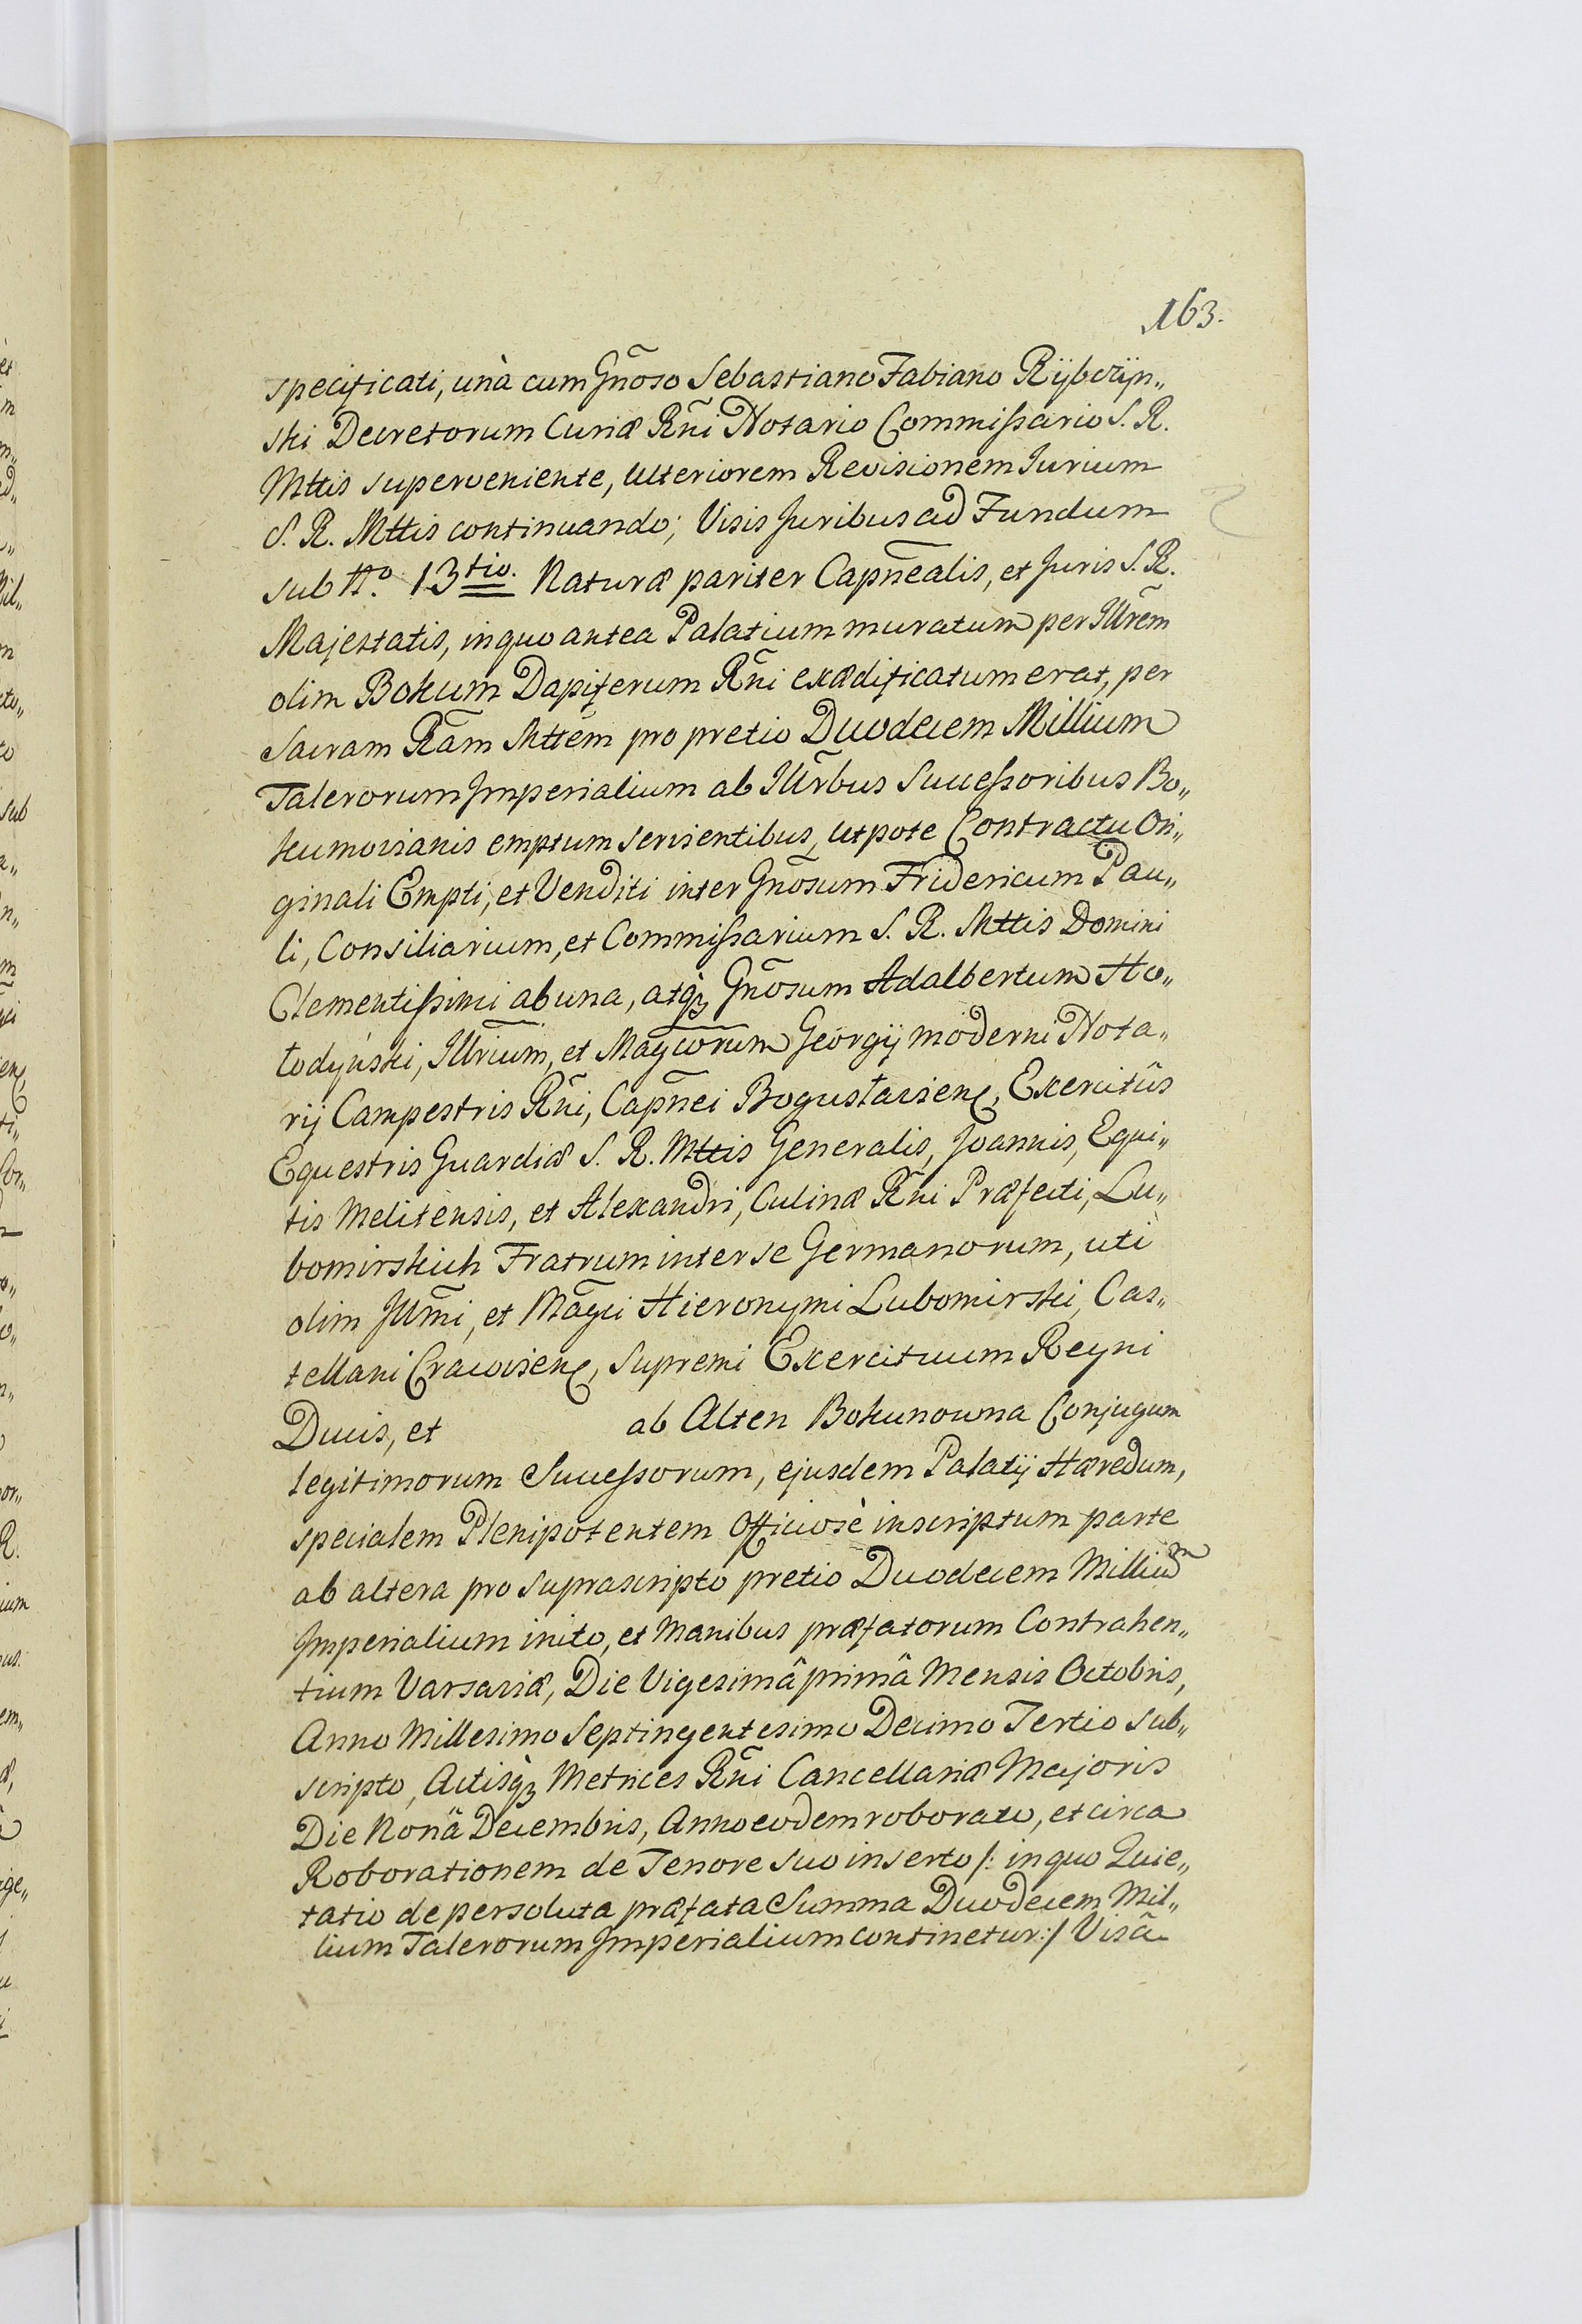 163.
specificati, unà cum Gñoso Sebastiano Fabiano Rÿbczÿn„
ski Decretorum Curiæ Rñi Notario Commißario S. R.
Mttis superveniente, ulteriorem Revisionem Jurium
S. R. Mttis continuando; Visis Juribus ad Fundum
sub No. 13tio. Naturæ pariter Capñealis, et Juris S. R.
Majestatis, in quo antea Palatium muratum per Illrẽm
olim Bokum Dapiferum Rñi exædificatum erat, per
Sacram Rãm Mttẽm pro pretio Duodecem Millium
Talerorum Imperialium ab Illr̃bus Succeßoribus Bo„
kumovianis emptum servientibus, utpote Contractu Ori„
ginali Empti, et Venditi inter Gñosum Fridericum Pau„
li, Consiliarium, et Commißarium S. R. Mttis Domini
Clementißimi ab una, atqꝫ Gñosum Adalbertum Ho„
łodyński, Illrium, et Magcorum Georgij moderni Nota„
rij Campestris Rñi, Capñei Bogusłavieñ, Exercitûs
Equestris Guardiæ S. R. Mttis Generalis, Joannis, Equi„
tis Melitensis, et Alexandri, Culinæ Rñi Præfecti, Lu„
bomirskich Fratrum inter se Germanorum, uti
olim Illm̃i, et Mãgci Hieronymi Lubomirski, Cas„
tellani Cracovieñ, Supremi Exercituum Regni
Ducis, et ab Alten Bokunowna Conjugum
legitimorum Succeßorum, ejusdem Palatij Hæredum,
specialem Plenipotentem Officiosè inscriptum parte
ab altera pro suprascripto pretio Duodecem Millium
Imperialium inito, et Manibus præfatorum Contrahen„
tium Varsaviæ, Die Vigesimâ primâ Mensis Octobris,
Anno Millesimo Septingentesimo Decimo Tertio sub„
scripto, Actisqꝫ Metrices Rñi Cancellariæ Majoris
Die Nonâ Decembris, Anno eodem roborato, et circa
Roborationem de Tenore suo inserto /: in quo Quie„
tatio de persoluta præfata Summa Duodecem Mil„
lium Talerorum Imperialium continetur :/ Visâ